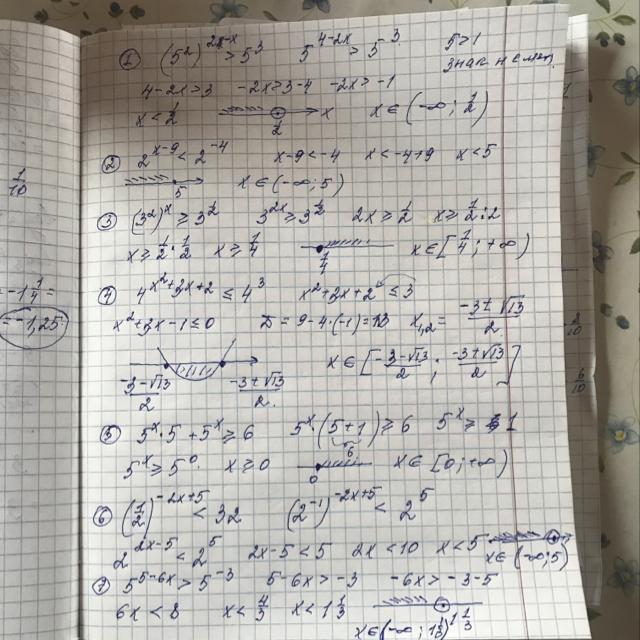 1/10
= -1 1/4 =
= -1,25
① (5²)^(2-x) > 5³   5^(4-2x) > 5³   5 > 1
знак не мен.
4-2x > 3   -2x > 3-4   -2x > -1
x < 1/2   1/2   x   x ∈ (-∞; 1/2)
② 2^(x-9) < 2^(-4)   x-9 < -4   x < -4+9   x < 5
5   x ∈ (-∞; 5)
③ (3²)^x ≥ 3^(1/2)   3^(2x) ≥ 3^(1/2)   2x ≥ 1/2   x ≥ 1/2 : 2
x ≥ 1/2 · 1/2   x ≥ 1/4   1/4   x ∈ [1/4; +∞)
④ 4^(x²+3x+2) ≤ 4³   x²+3x+2 ≤ 3
x²+3x-1 ≤ 0   D = 9-4·(-1) = 13   x₁,₂ = (-3±√13)/2
(-3-√13)/2   (-3+√13)/2   x ∈ [(-3-√13)/2; (-3+√13)/2]
⑤ 5^x · 5 + 5^x ≥ 6   5^x · (5+1) ≥ 6   5^x ≥ 1
6
5^x ≥ 5^0   x ≥ 0   0   x ∈ [0; +∞)
⑥ (1/2)^(-2x+5) < 32   (2^(-1))^(-2x+5) < 2^5
2^(2x-5) < 2^5   2x-5 < 5   2x < 10   x < 5
x ∈ (-∞; 5)
⑦ 5^(5-6x) > 5^(-3)   5-6x > -3   -6x > -3-5
6x < 8   x < 4/3   x < 1 1/3   1 1/3
x ∈ (-∞; 1 1/3)
6/10